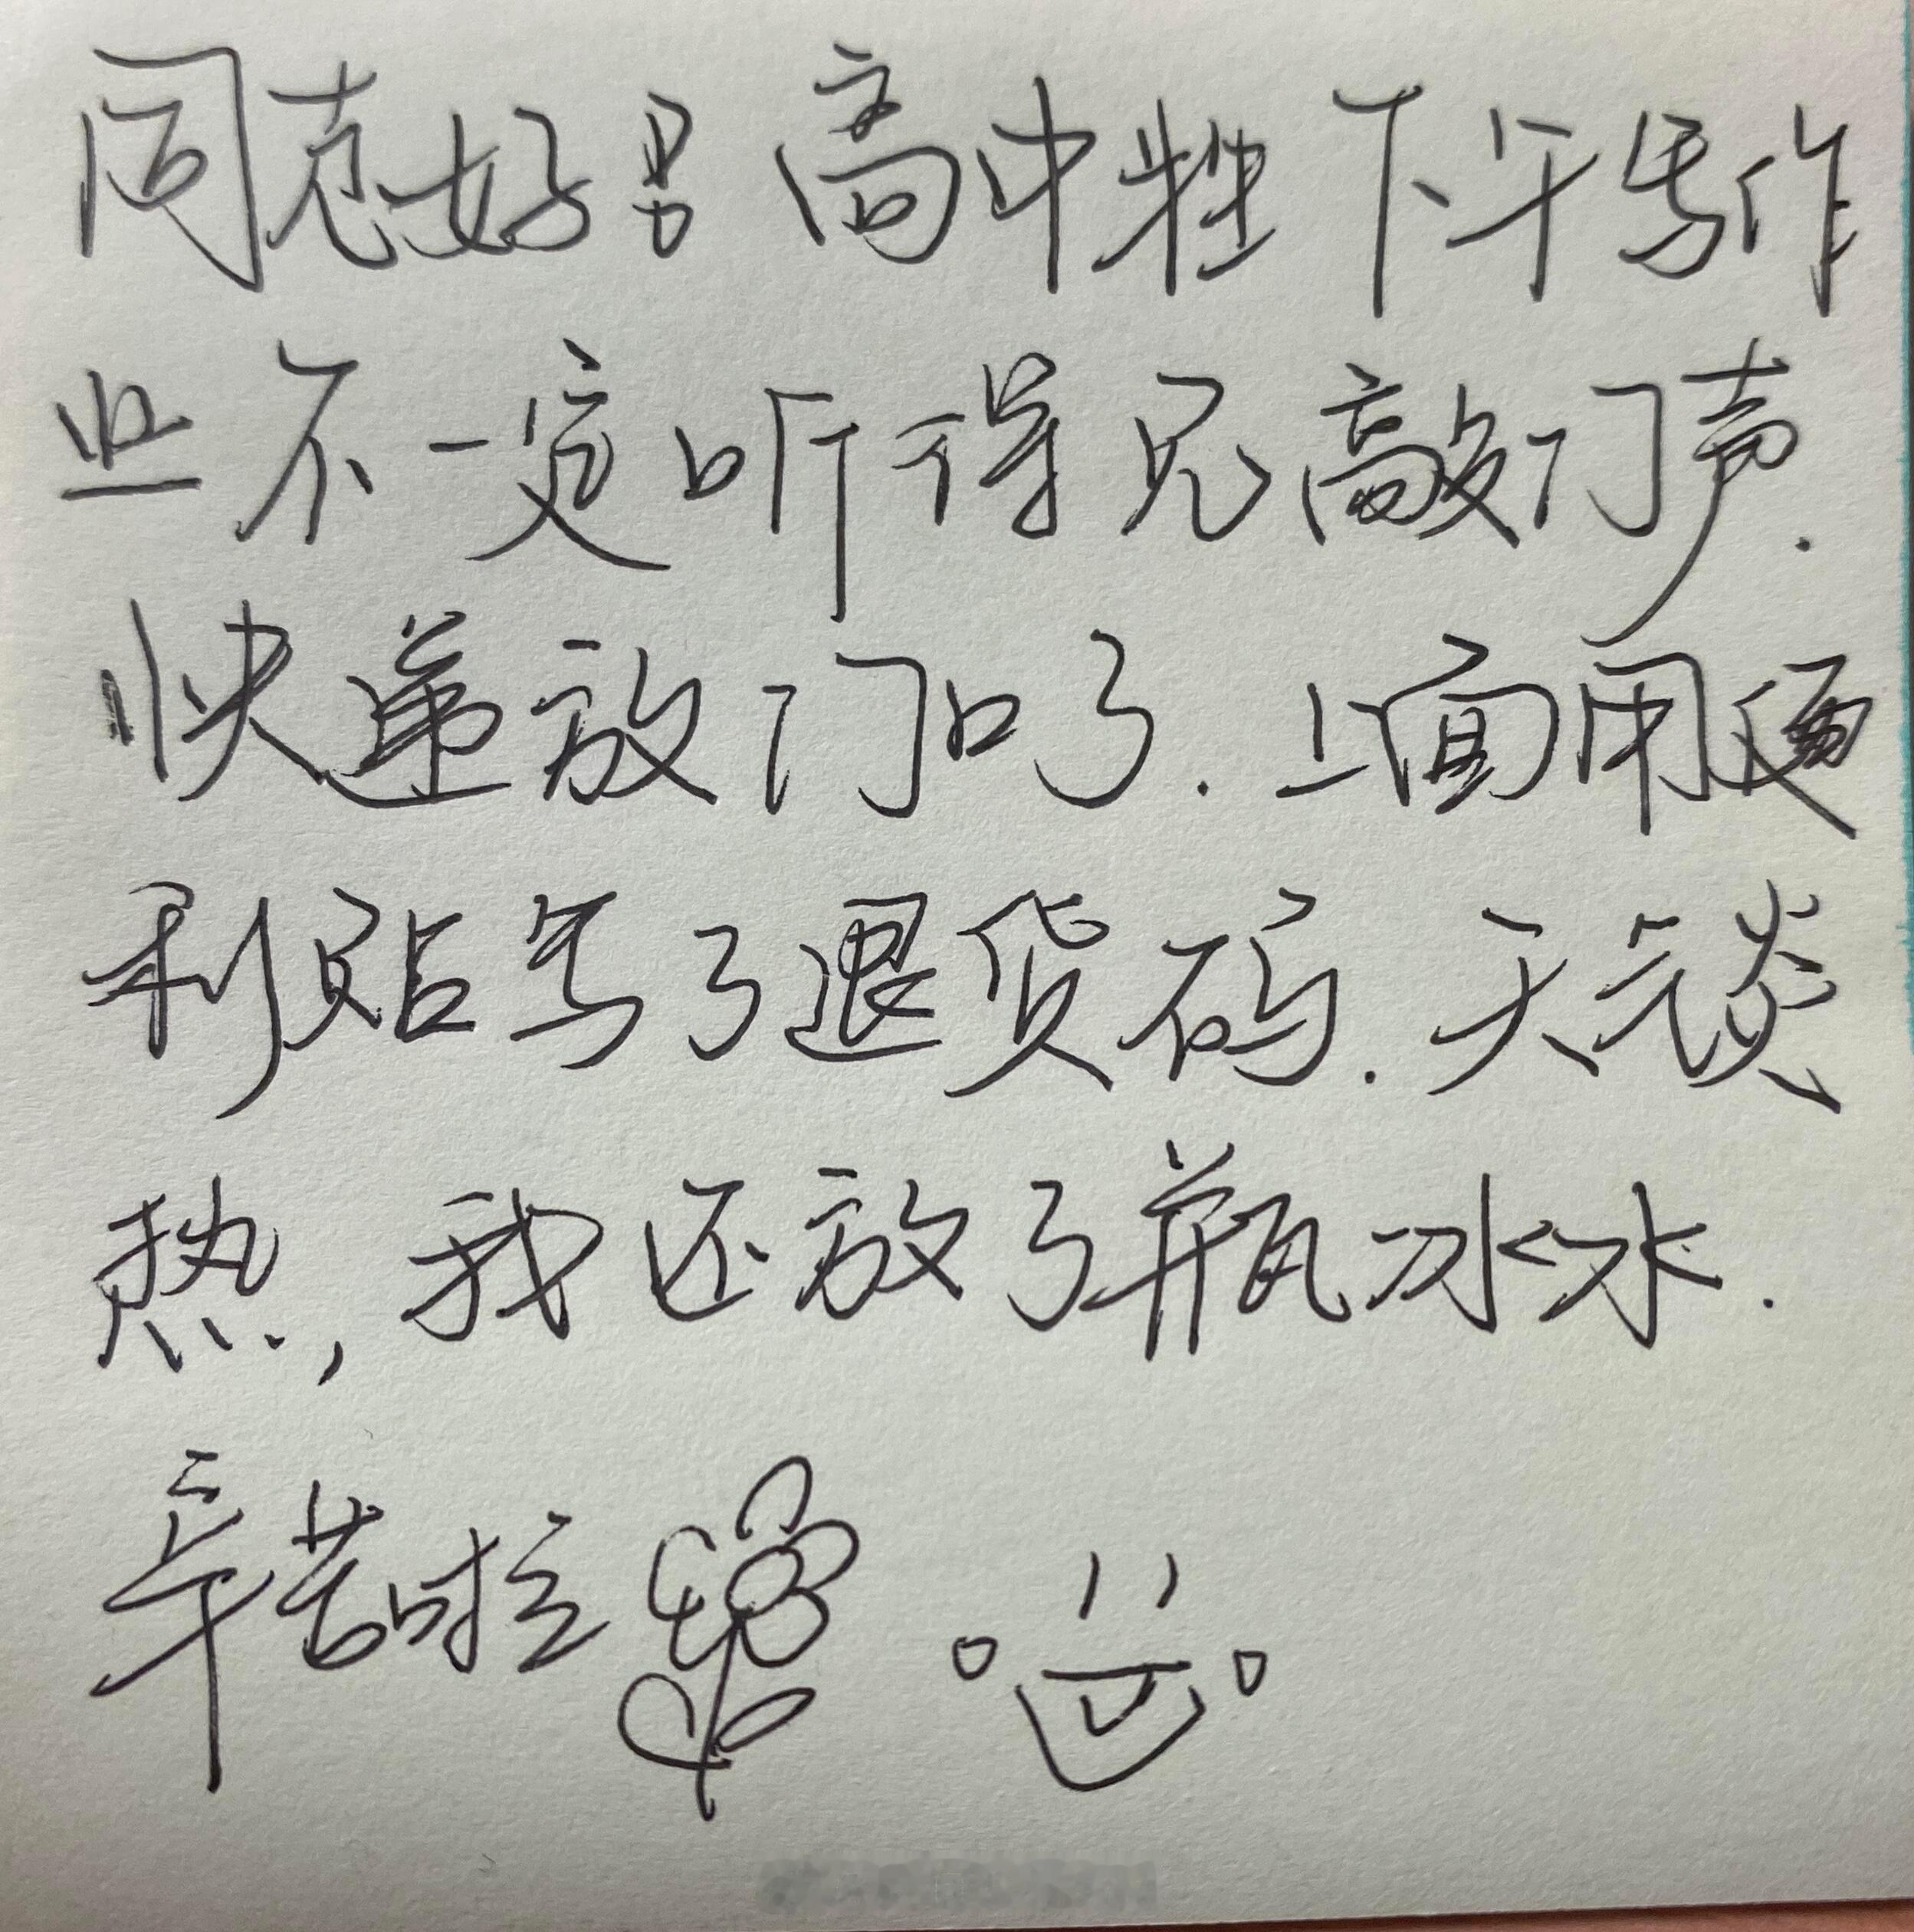 同志好男高中牲下午写作
业不一定听得见敲门声.
快递放门口了.上面用便
利贴写了退货码.天气炎
热,我还放了瓶冰水.
辛苦啦